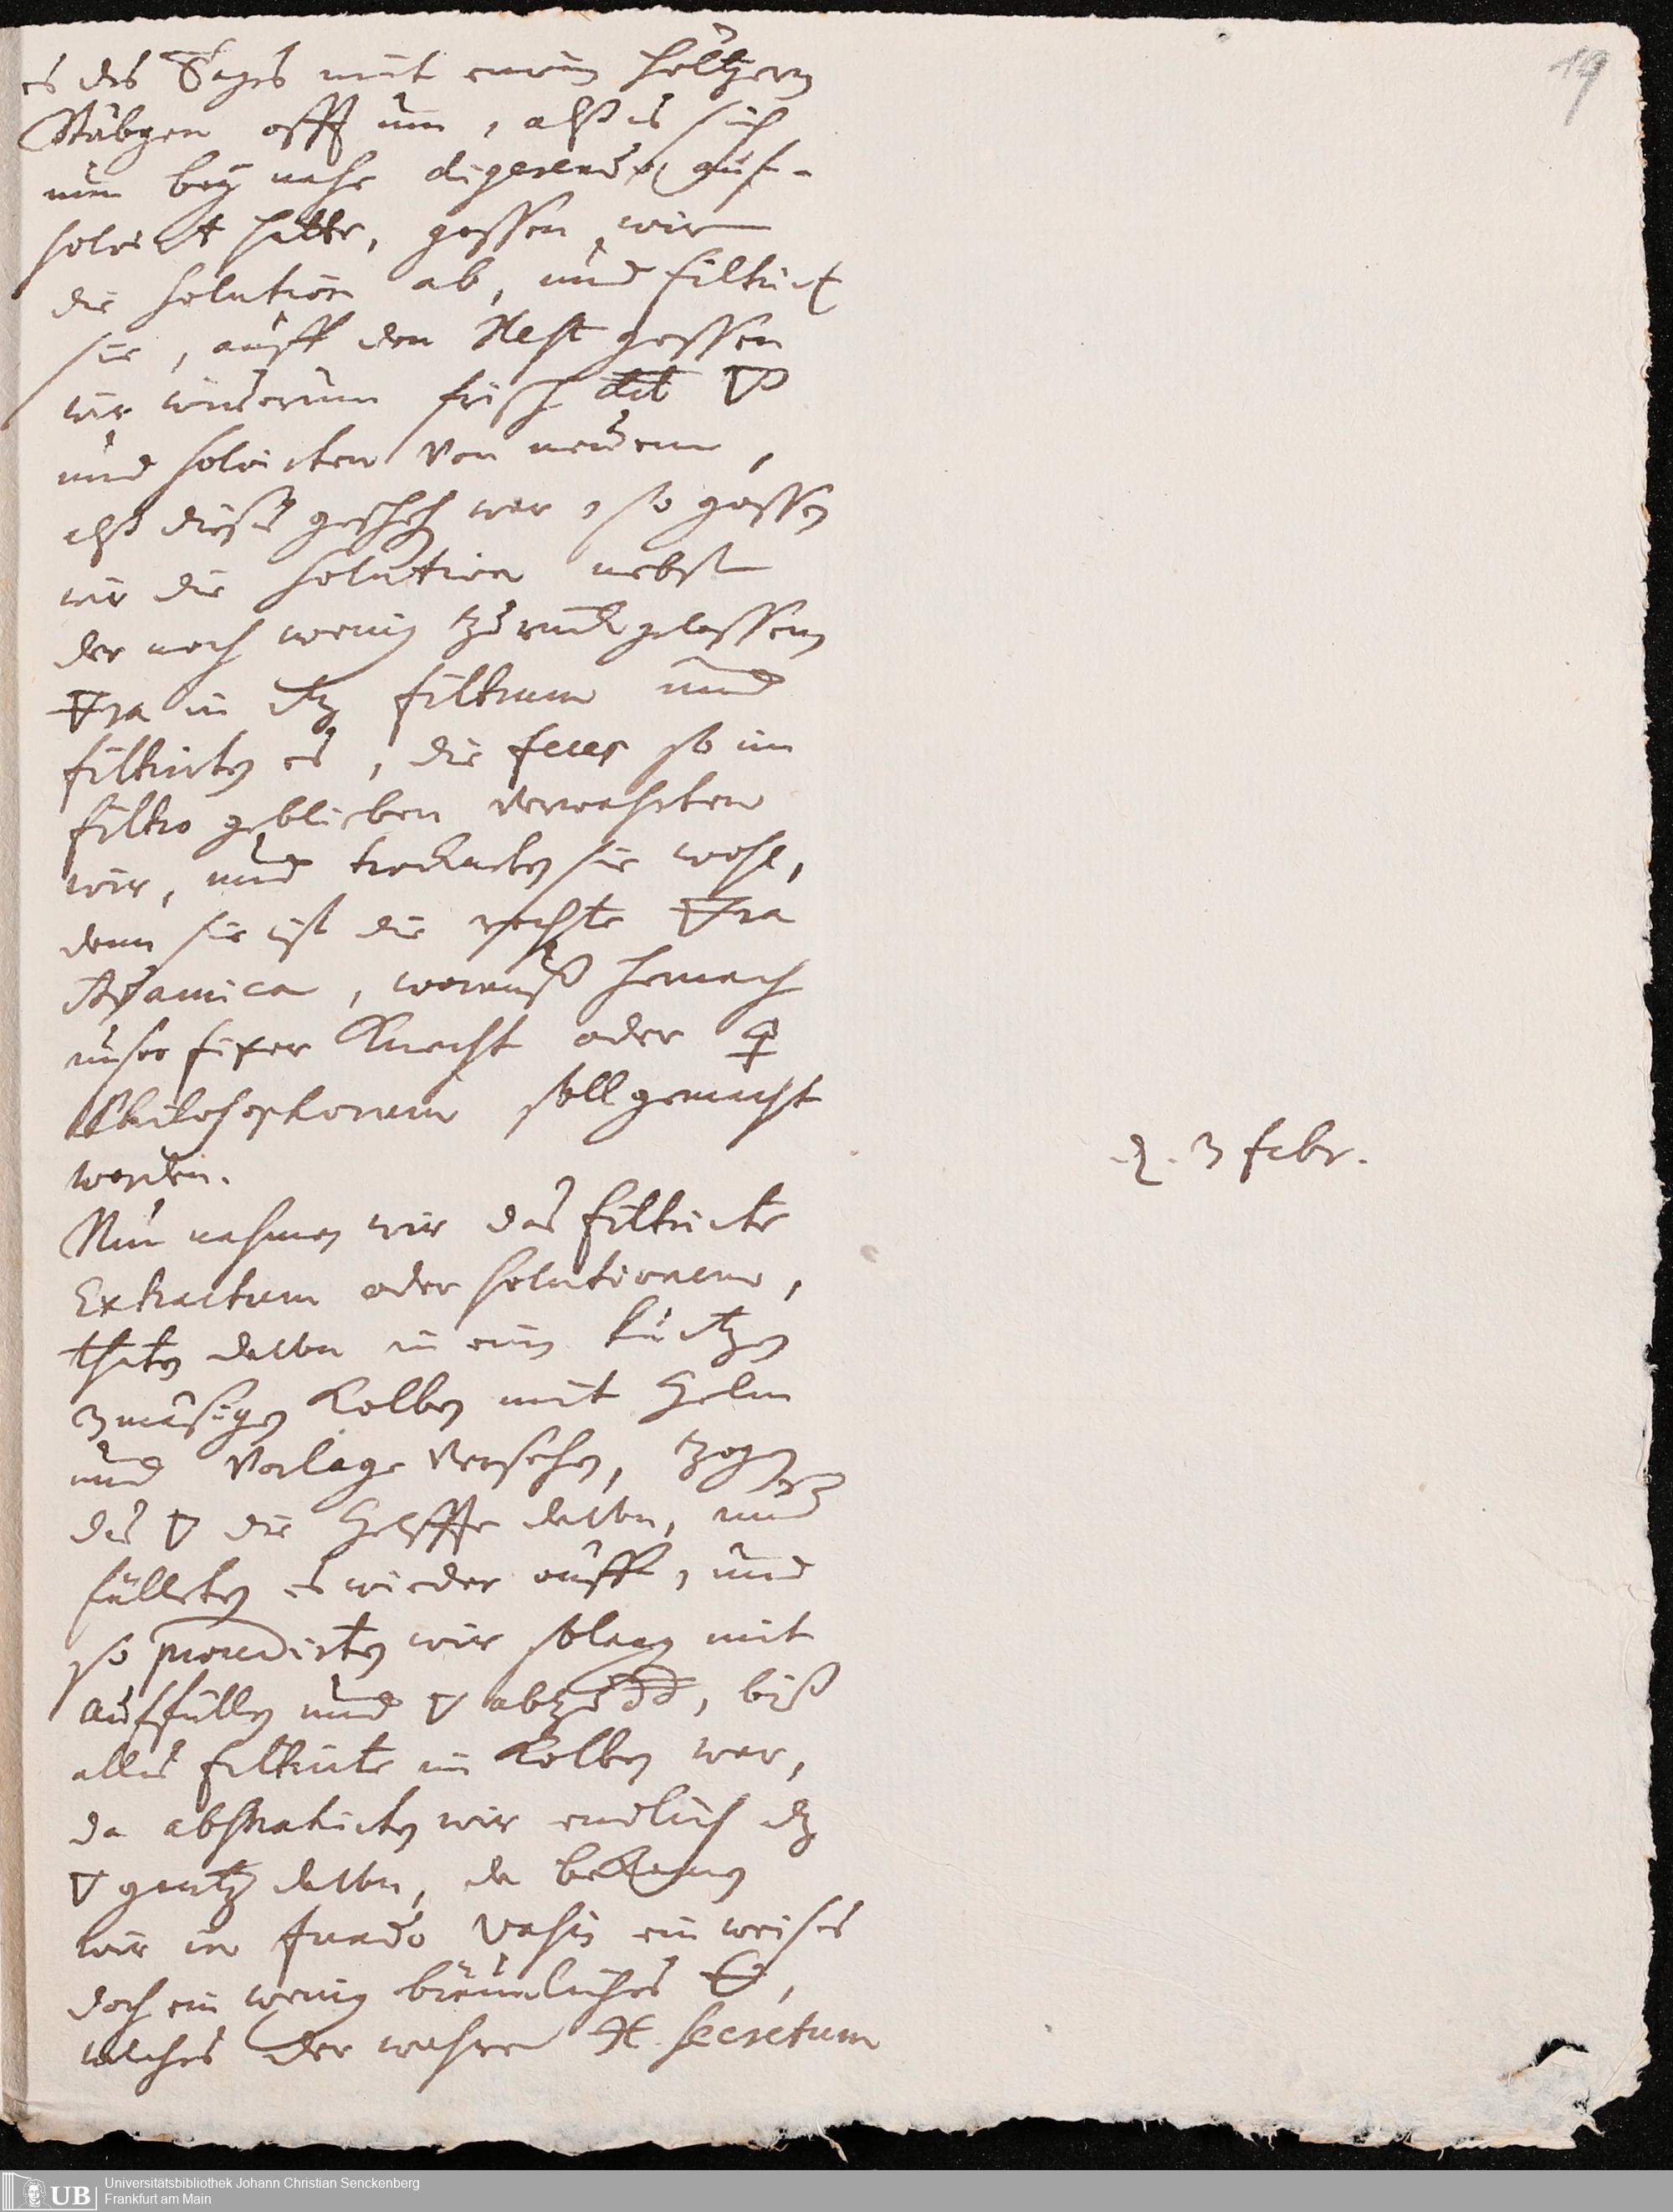 19
es des Tages mit einem höltzern
Stäbgen offt um, alß es sich
nun bey nahe digerendo auf-
solvirt hatte, gossen wir
die Solution ab, und filtrirt
sie, auff den Rest gossen
wir wiederum frisch dest 🜄
und solvirten von neuem,
alß dieses gescheh war, so gossen
wir die Solution nebst
der noch wenig zurückgelassenen
🜃ra in dz filtrum und
filtrirten es, die feces so im
filtro geblieben verwahrten
wir, und trockneten sie wohl,
denn sie ist die rechte 🜃ra
Adamica, worauß hernach
unser fixer Knecht oder 🜍
Philosophorum soll gemacht
werden.
d. 3 febr.
Nun nahmen wir das filtrirte
Extractum oder Solutionem,
thaten davon in ein kurtzen
3 mäsigen Kolben mit Helm
und Vorlage versehen, zogen
das 🜄 die Helffte davon, und
fülleten es wieder auff, und
so procedirten wir solang mit
auffüllen und 🜄 abzu, biß
alles filtrirte im Kolben war,
da abstrahirten wir endlich dz
🜄 gantz davon, da bekamen
wir in fundo vasis ein weises
doch ein wenig bräunliches 🜔,
welches der wahre secretum
Universitätsbibliothek Johann Christian Senckenberg
Frankfurt am Main
UB